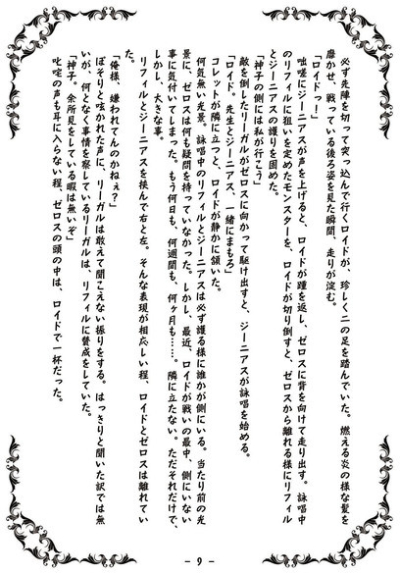 必ず先陣を切って突っ込んで行くロイドが、珍しく二の足を踏んでいた。燃える炎の様な髪を
靡かせ、戦っている後ろ姿を見た瞬間、走りが淀む。
「ロイドっ！」
咄嗟にジーニアスが声を上げると、ロイドが踵を返し、ゼロスに背を向けて走り出す。詠唱中
のリフィルに狙いを定めたモンスターを、ロイドが切り倒すと、ゼロスから離れる様にリフィル
とジーニアスの護りを固めた。
「神子の側には私が行こう」
敵を倒したリーガルがゼロスに向かって駆け出すと、ジーニアスが詠唱を始める。
「ロイド。先生とジーニアス、一緒にまもろ」
コレットが隣に立つと、ロイドが静かに頷いた。
何気無い光景。詠唱中のリフィルとジーニアスは必ず護る様に誰かが側にいる。当たり前の光
景に、ゼロスは何も疑問を持っていなかった。しかし、最近、ロイドが戦いの最中、側にいない
事に気付いてしまった。もう何日も、何週間も、何ヶ月も……。隣に立たない。ただそれだけで、
しかし、大きな事。
リフィルとジーニアスを挟んで右と左。そんな表現が相応しい程、ロイドとゼロスは離れてい
た。
「俺様、嫌われてんのかねぇ？」
ぼそりと呟かれた声に、リーガルは敢えて聞こえない振りをする。はっきりと聞いた訳では無
いが、何となく事情を察しているリーガルは、リフィルに賛成をしていた。
「神子。余所見をしている暇は無いぞ」
叱咤の声も耳に入らない程、ゼロスの頭の中は、ロイドで一杯だった。
- 9 -